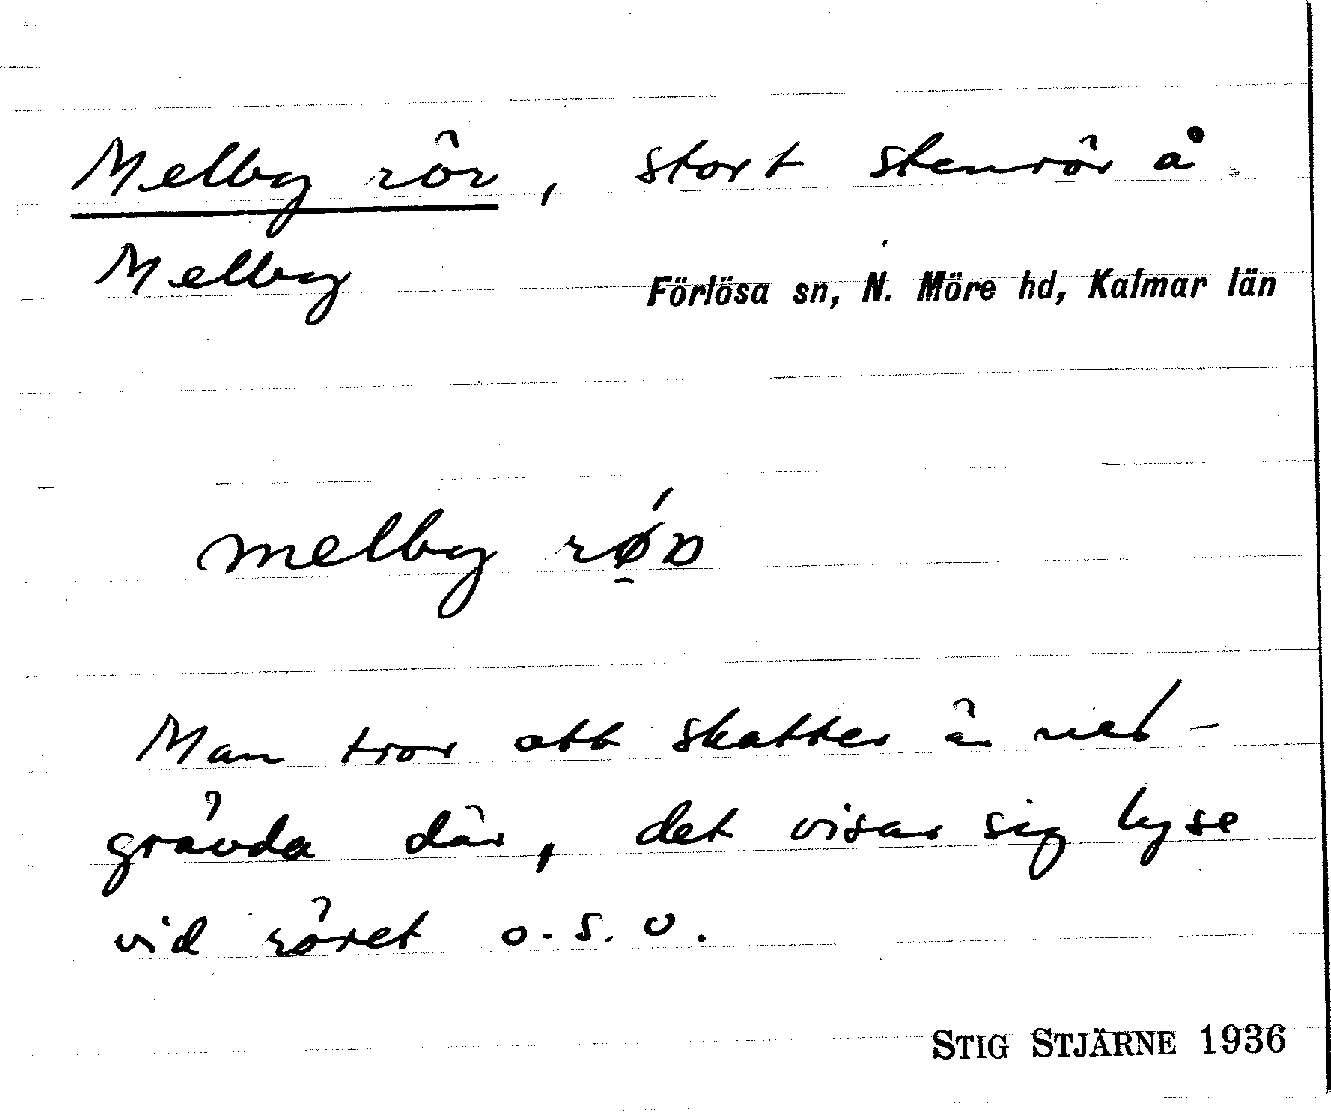 Melby rör, stort stenrör å
Melby
Förlösa sn, N. Möre hd, Kalmar län
melby rǿɒ
Man tror att skatter ä ned-
grävda där, det visar sig lyse
vid röret o.s.v.
STIG STJÄRNE 1936